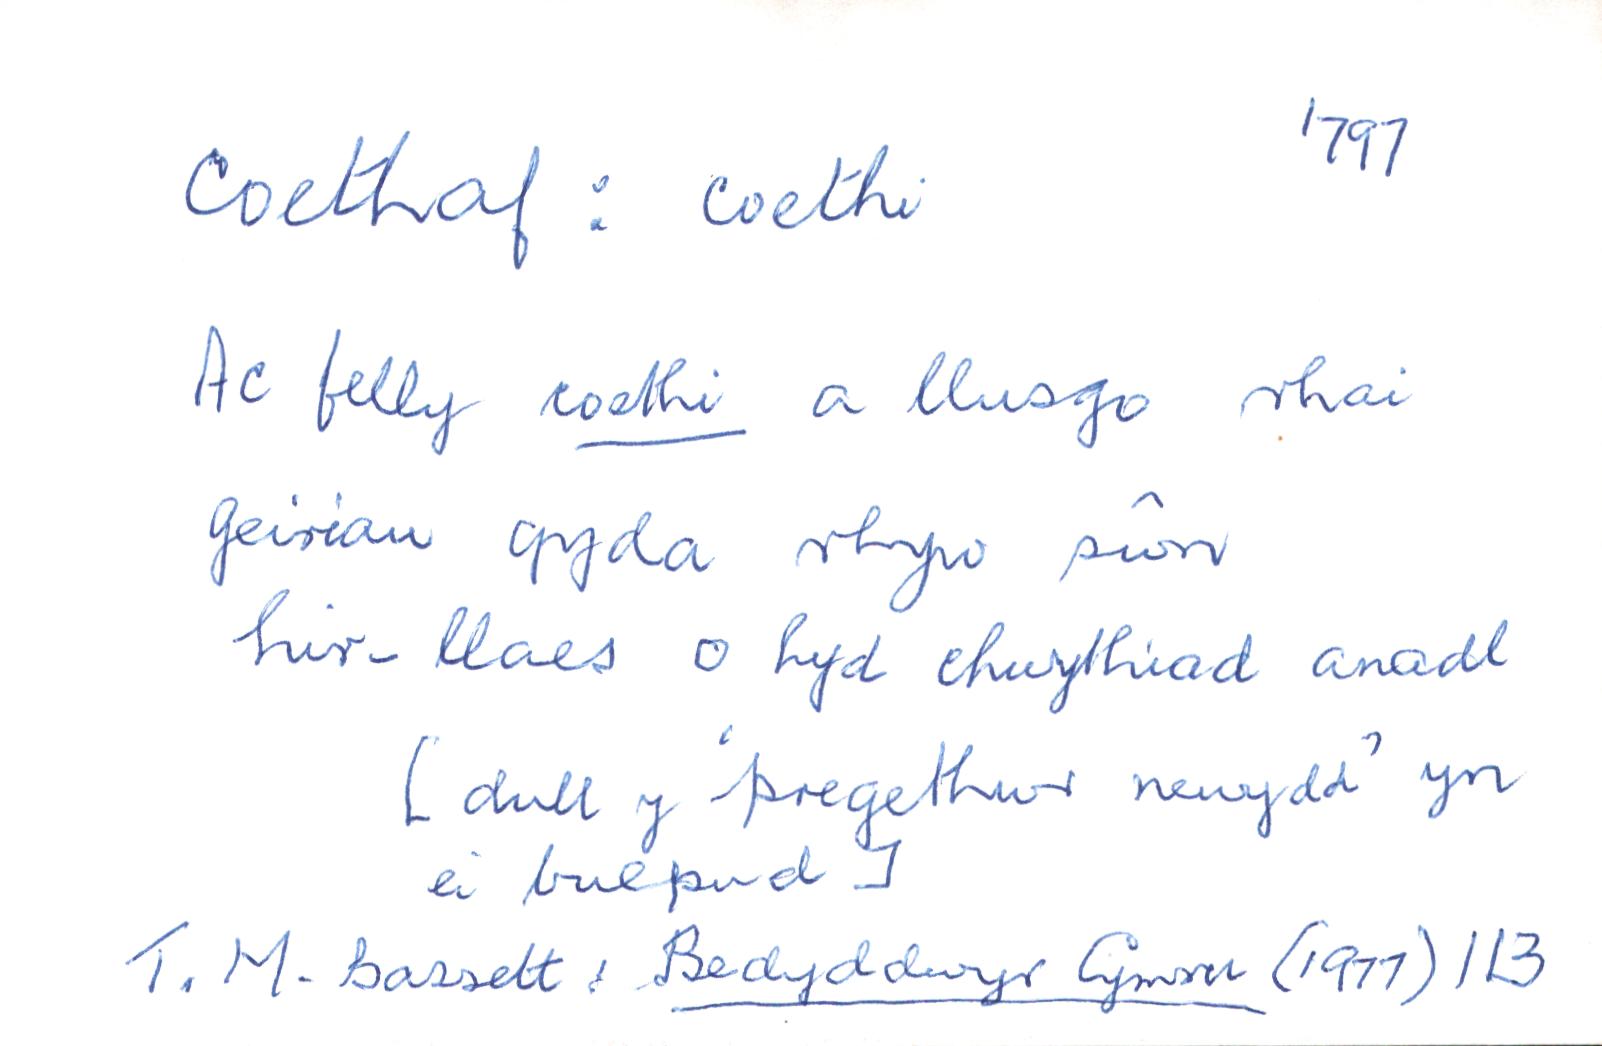 1797
Coethaf : coethi
Ac felly coethi a llusgo rhai
geiriau gyda rhyw sŵn
hir-llaes o hyd chwythiad anadl
[dull y 'pregethwr newydd' yn
ei bulpud]
T. M. Bassett : Bedyddwyr Cymru (1977) 113